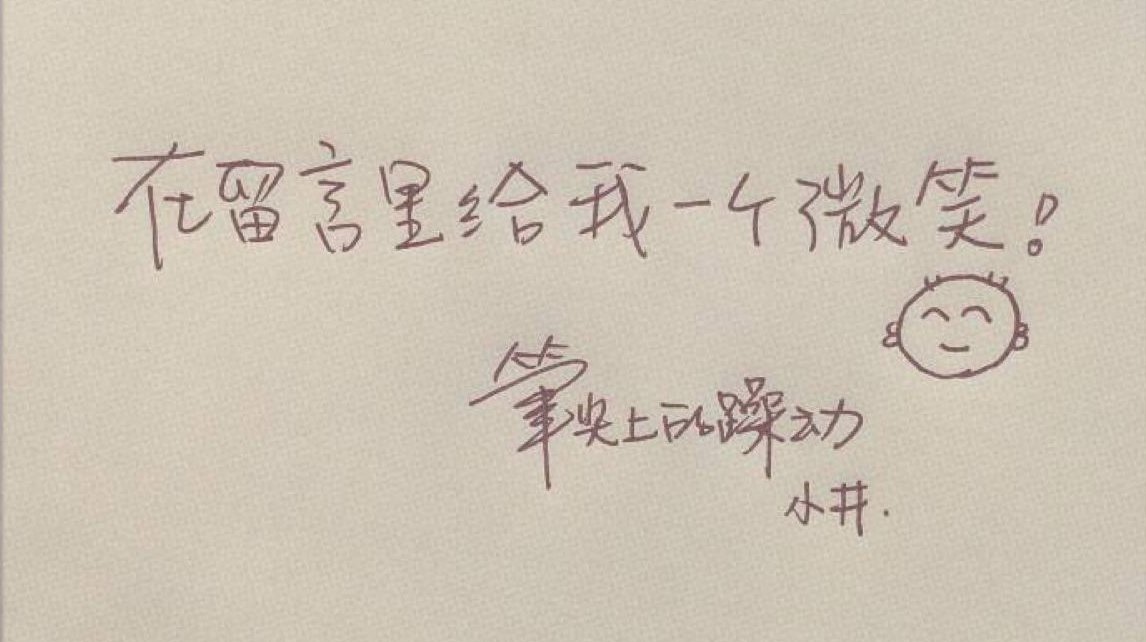 在留言里给我一个微笑!
筆尖上的躁动
小井.